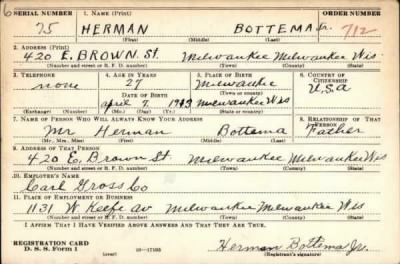 SERIAL NUMBER 1. NAME (Print) ORDER NUMBER
75 HERMAN BOTTEMA Jr. 712
(First) (Middle) (Last)
2. ADDRESS (Print)
420 E. BROWN St. Milwaukee Milwaukee Wis
(Number and street or R. F. D. number) (Town) (County) (State)
3. TELEPHONE 4. AGE IN YEARS 5. PLACE OF BIRTH 6. COUNTRY OF CITIZENSHIP
none 27 Milwaukee U.S.A
DATE OF BIRTH (Town or county)
April 7, 1913 Milwaukee Wis
(Exchange) (Number) (Mo.) (Day) (Yr.) (State or country)
7. NAME OF PERSON WHO WILL ALWAYS KNOW YOUR ADDRESS 8. RELATIONSHIP OF THAT PERSON
Mr Herman Bottema Father
(Mr., Mrs., Miss) (First) (Middle) (Last)
9. ADDRESS OF THAT PERSON
420 E. Brown St. Milwaukee Milwaukee Wis
(Number and street or R. F. D. number) (Town) (County) (State)
10. EMPLOYER'S NAME
Carl Gross Co
11. PLACE OF EMPLOYMENT OR BUSINESS
1131 W Keefe av Milwaukee Milwaukee Wis
(Number and street or R. F. D. number) (Town) (County) (State)
I AFFIRM THAT I HAVE VERIFIED ABOVE ANSWERS AND THAT THEY ARE TRUE.
REGISTRATION CARD
D. S. S. Form 1 (over) Herman Bottema Jr.
(Registrant's signature)